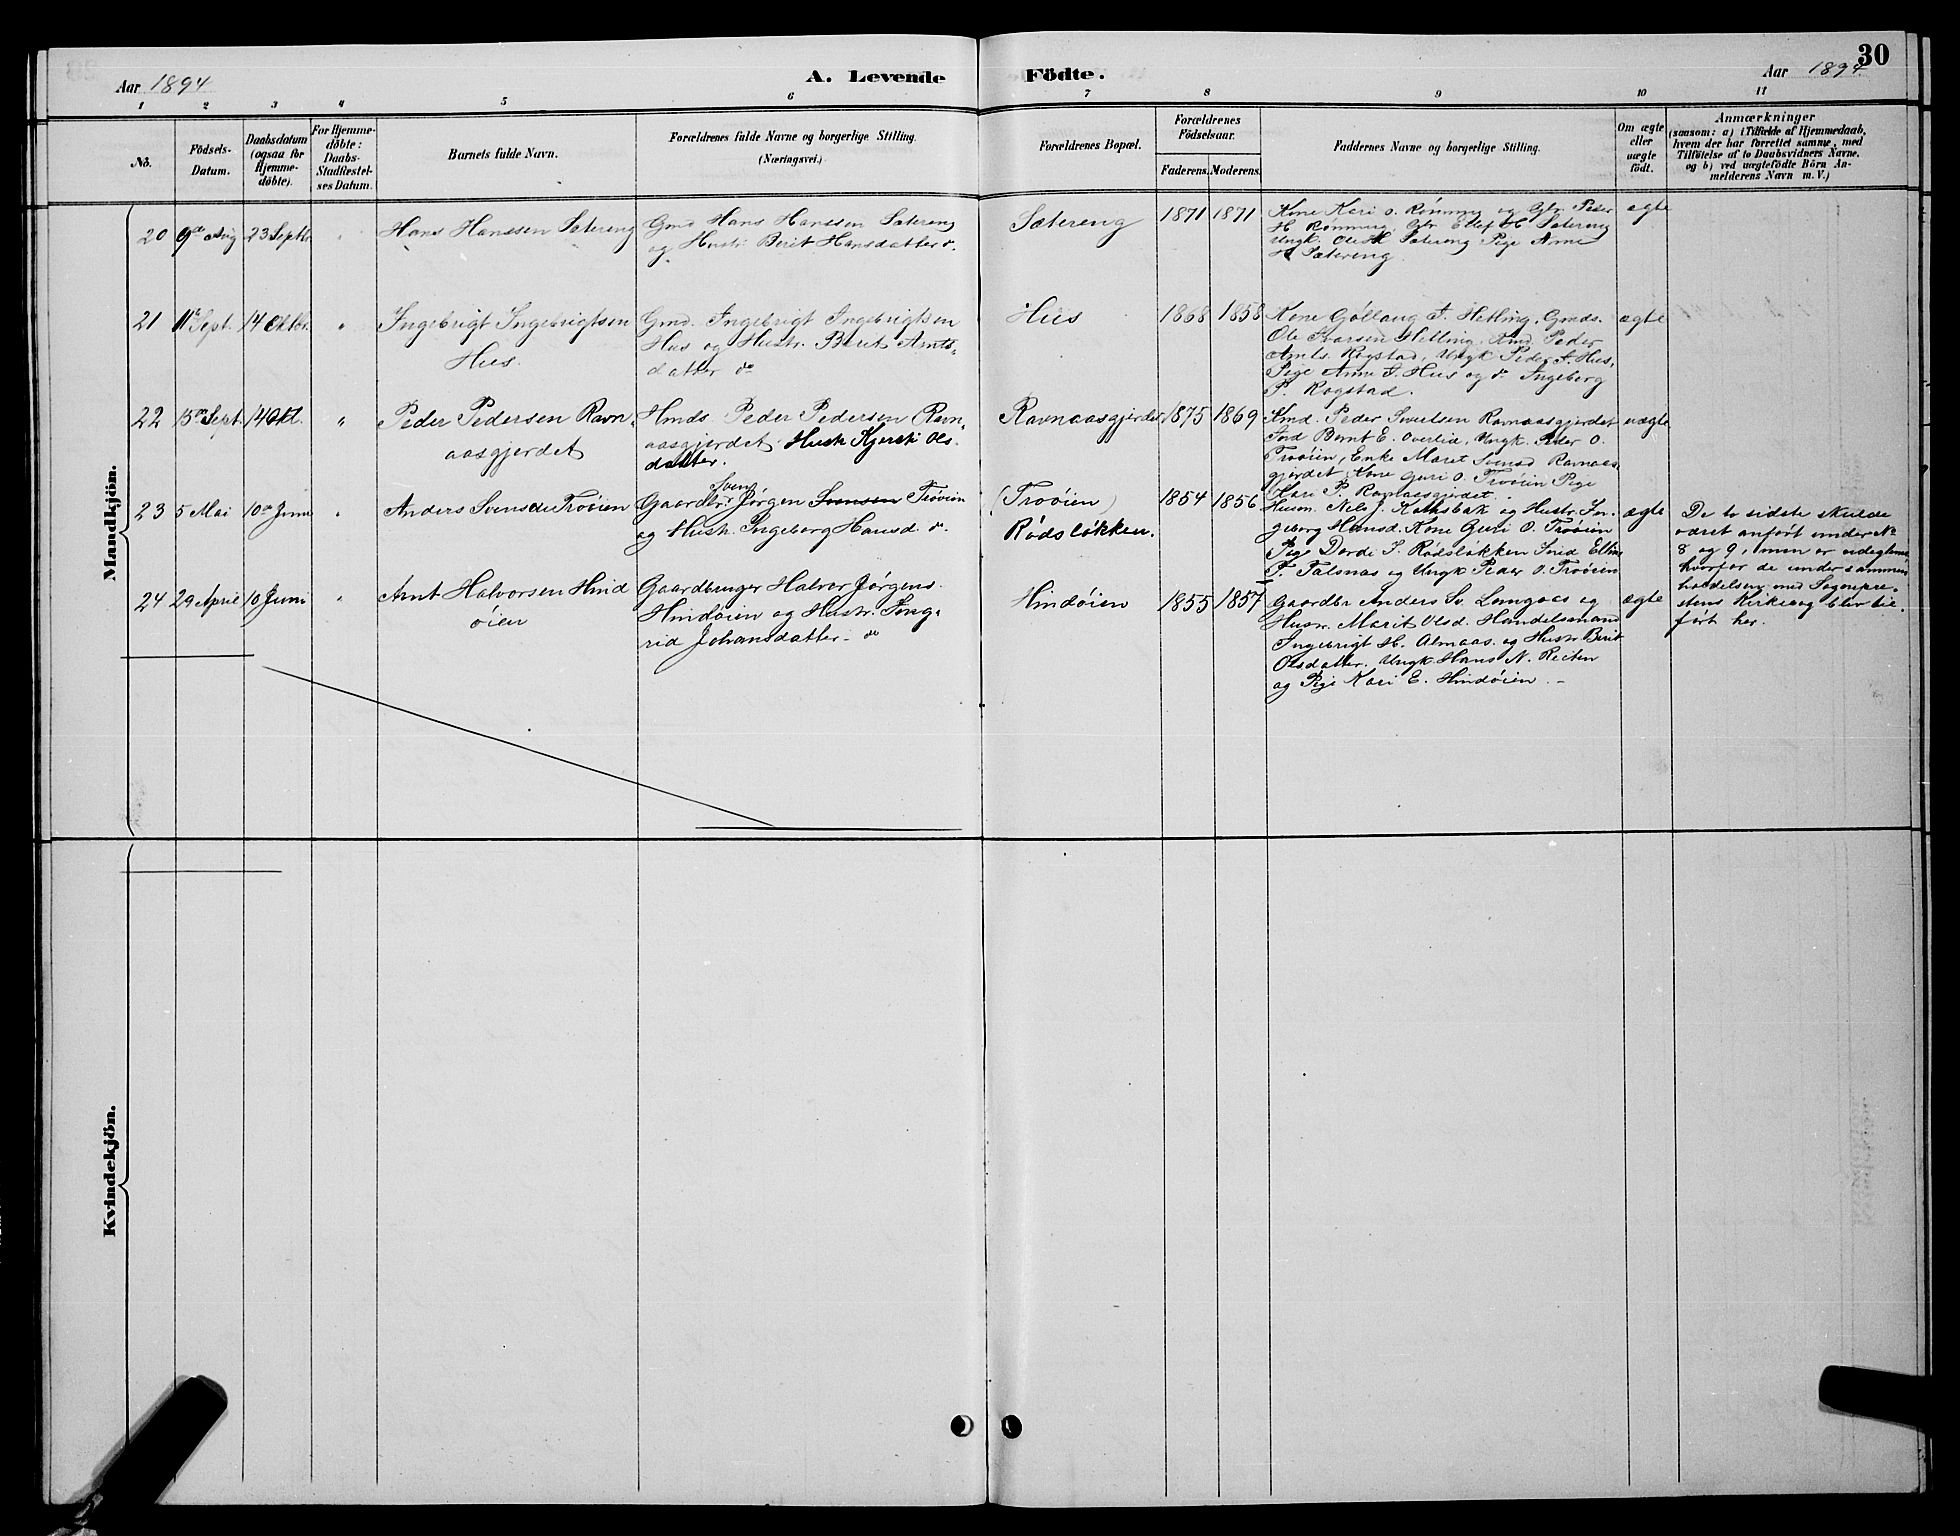 30
Aar 1894
A. Levende Födte.
Aar 1894
1 2 3 4 5 6 7 8 9 10 11
No.
Födsels-
Datum.
Daabsdatum
(ogsaa for
Hjemme-
døbte).
For Hjemme-
døbte:
Daabs-
Stadfæstel-
ses Datum.
Barnets fulde Navn.
Forældrenes fulde Navne og borgerlige Stilling.
(Næringsvei.)
Forældrenes Bopæl.
Forældrenes
Födselsaar.
Faderens. Moderens.
Faddernes Navne og borgerlige Stilling.
Om ægte
eller
uægte
födt.
Anmærkninger
(saasom: a) i Tilfælde af Hjemmedaab,
hvem der har forrettet samme, med
Tilföielse af to Daabsvidners Navne,
og b) ved uægtefödte Börn An-
melderens Navn m. V.)
Mandkjön.
20 9de Aug 23 Septbr "
Hans Hanssen Sætereng
Gmd Hans Hanssen Sætereng
og Hustr. Berit Hansdatter do.
Sætereng
1871 1871
Kone Kari O. Rønning og Gbr. Peder
H Rønning, Gbr. Ellef H. Sætereng
Ungk. Ole H. Sætereng Pige Anne
H Sætereng.
ægte
21 11te Sept. 14 Oktbr. "
Ingebrigt Ingebrigtsen
Hus.
Gmd. Ingebrigt Ingebrigtsen
Hus og Hustr. Berit Arnts-
datter do
Hus
1868 1858
Kone Gollaug I. Hetling, Gmds.
Ole Ivarsen Hetling, Kmd. Peder
Arnts. Rogstad, Ungk Peder A. Hus,
Pige Anne I. Hus og do Ingeborg
P. Rogstad.
ægte
22 15de Sept. 14 Okt. "
Peder Pedersen Ravn-
aasgjerdet
Hmds Peder Pedersen Ravn-
aasgjerdet Hustr Kjersti Ols-
datter.
Ravnaasgjerdet
1875 1869
Hmd. Peder Ravnaasgjerdet
Ind Bernt E. Overlid, Ungk. Peder O.
Trøøien, Enke Maret Svensd Ravnaas-
gjerdet, Kone Guri O. Trøøien Pige
Kari P. Ravnaasgjerdet.
uægte
23 5 Mai 10de Juni "
Anders Svensen Trøøien
Sven
Gaardbr. Jørgen Svensen Trøøien
og Hustr. Ingeborg Hansd. do.
(Trøøien)
Rødsløkken.
1854 1856
Husm. Nels J. Kalhsbak og Hustr. In-
geborg Hansd. Kone Guri O. Trøøien
Pige Dordi S. Rødsløkken
F. Talsnas og Ungk Peder O. Trøøien
ægte
De to sidste skulde
været anført under No
8 og 9, men er
hvorfor de under sammen-
holdelsen med Sognepre-
stens Kirkebog blev til-
ført her.
24 29 April 10 Juni "
Arnt Halvorsen Hind
øien
Gaardbruger Halvor Jørgens.
Hindøien og Hustr. Ing-
rid Johansdatter - do
Hindøien
1855 1857
Gaardbr Anders Sv. Langaas og
Hustr. Marit Olsd. Handelsmand
Ingebrigt H. Almaas og Hustr Berit
Olsdatter. Ungk. Hans N. Reiten
og Pige Kari E. Hindøien. -
ægte
Kvindekjön.